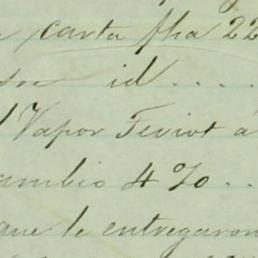 carta fha 22
id ....
Vapor Teviot á
ambio 4 %..
que le entregaron